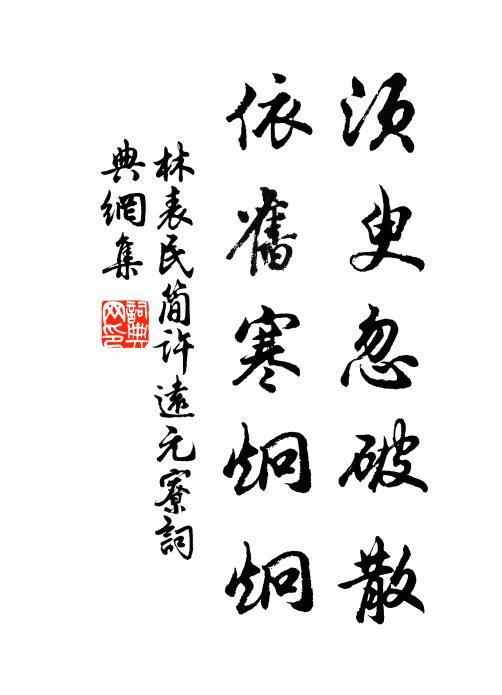 須臾忽破散
依舊寒炯炯
林表民简許遠元寮詞
典網集
詞典網印